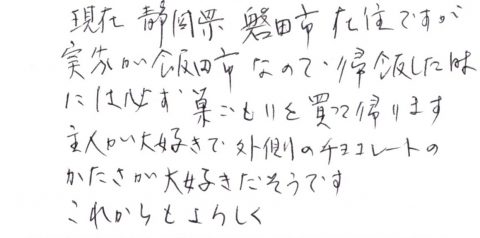 現在 静岡県 磐田市 在住ですが
実家が飯田市なので、帰飯した時
には必ず 巣ごもりを買って帰ります
主人が大好きで外側のチョコレートの
かたさが大好きだそうです
これからもよろしく